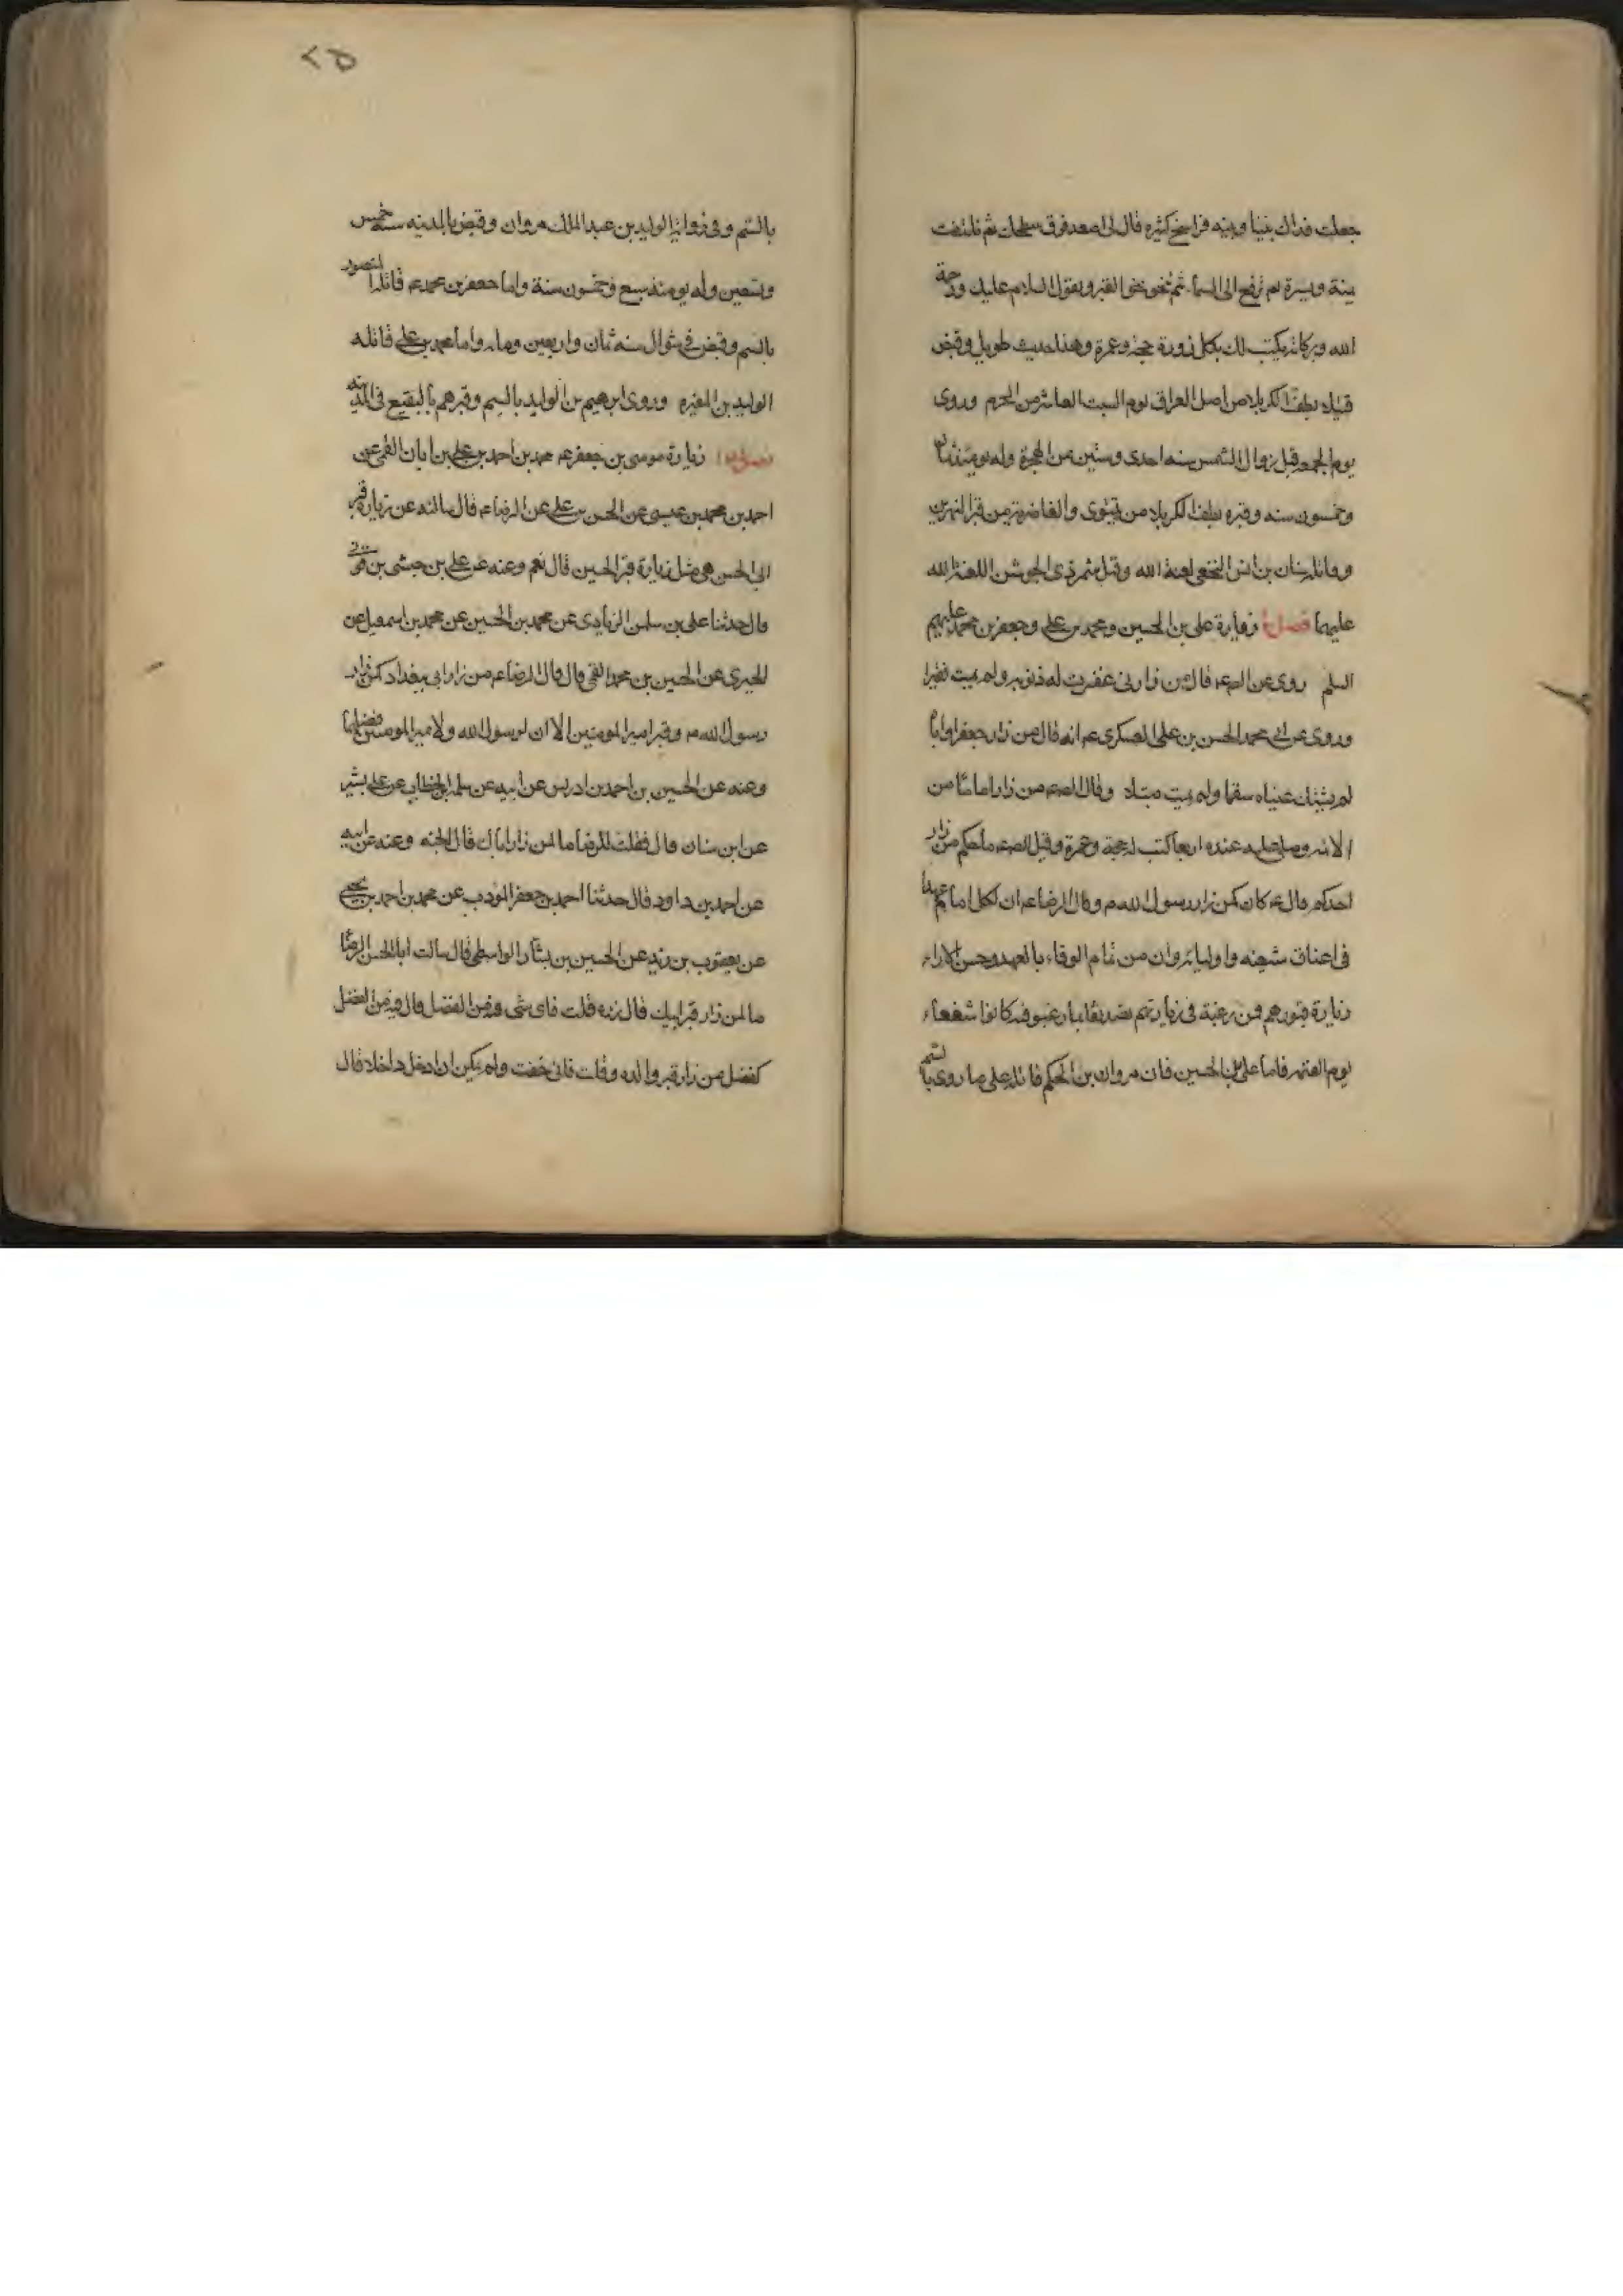 جعلت فداك بيننا وبينه فراسخ كثيره قال لى اصعد فوق سطحك ثم تلتفت
يمنة ويسرة ثم ترفع الى السماء ثم تنحو نحو القبر وتقول السلام عليك ورحمة
الله وبركاته يكتب لك بكل زورة حجة وعمرة وهذا حديث طويل وقبض
قتيلا بطف كربلا من اصل العراق يوم السبت العاشر من المحرم وروى
يوم الجمعه قبل زوال الشمس سنه احدى وستين من الهجرة وله يومئذ ثمان
وخمسون سنه وقبره بطف كربلا من نينوى والغاضرية من قبر النهرين
وقاتله سنان بن انس النخعى لعنه الله وقيل شمر ذى الجوشن اللعنة الله
عليهما فصل زيارة على بن الحسين ومحمد بن على وجعفر بن محمد عليهم
السلم روى عن الصء قال من زارنى غفرت له ذنوبه ولم يمت فقيرا
وروى عن ابى محمد الحسن بن على العسكرى عم انه قال من زار جعفرا واباه
لم يشتك عيناه سقما ولم يمت مبتلا وقال الصعم من زار اماما من
الائمه وصلى عليه عنده اربعا كتب له حجة وعمرة وقيل للصعم ما حكم من زار
احدكم قال عم كان كمن زار رسول الله م وقال الرضا عم ان لكل امام عهدا
فى اعناق شيعته واوليائه وان من تمام الوفاء بالعهد وحسن الاداء
زيارة قبورهم فمن رغبة فى زيارتهم تصديقا بما رغبوا فيه كانوا شفعاء
يوم القيمه فاما على بن الحسين فان مروان بن الحكم قاتله على ما روى بالسم
٢٥
بالسم وفى روايه الوليد بن عبد الملك مروان وقبض بالمدينه سنه خمس
وتسعين وله يومئذ سبع وخمسون سنة واما جعفر بن محمد عم قاتله المنصور
بالسم وقبض فى شوال سنه ثمان واربعين ومايه واما محمد بن على قاتله
الوليد بن المغيره وروى ابرهيم بن الوليد بالسم وقبرهم بالبقيع فى المدينه
فصل زيارة موسى بن جعفر عم محمد بن احمد بن على بن ابان القمى عن
احمد بن محمد بن عيسى عن الحسن بن على عن الرضا عم قال سالته عن زيارة قبر
ابى الحسن هى مثل زيارة قبر الحسين قال نعم وعنه عن على بن حبشى بن قونى
قال حدثنا على بن سلمن الزيادى عن محمد بن الحسين عن محمد بن اسمعيل عن
الخيبرى عن الحسين بن محمد القمى قال قال الرضا عم من زار ابى ببغداد كمن زار
رسول الله م وقبر امير المومنين الا ان لرسول الله ولامير المومنين فضلهما
وعنه عن الحسين بن احمد بن ادريس عن ابيه عن سلمه بن الخطاب عن على بشير
عن ابن سنان قال فقلت للرضا ما لمن زار اباك قال الجنه وعنه عن ابيه
عن احمد بن داود قال حدثنا احمد بن جعفر المؤدب عن محمد بن احمد بن يحيى
عن يعقوب بن زيد عن الحسين بن بشار الواسطى قال سالت ابا الحسن الرضا
ما لمن زار قبر ابيك قال زره قلت فاى شى فيه من الفضل قال فيه من الفضل
كفضل من زار قبر والده وقلت فانى خفت ولم يمكن ان ادخل داخلا قال